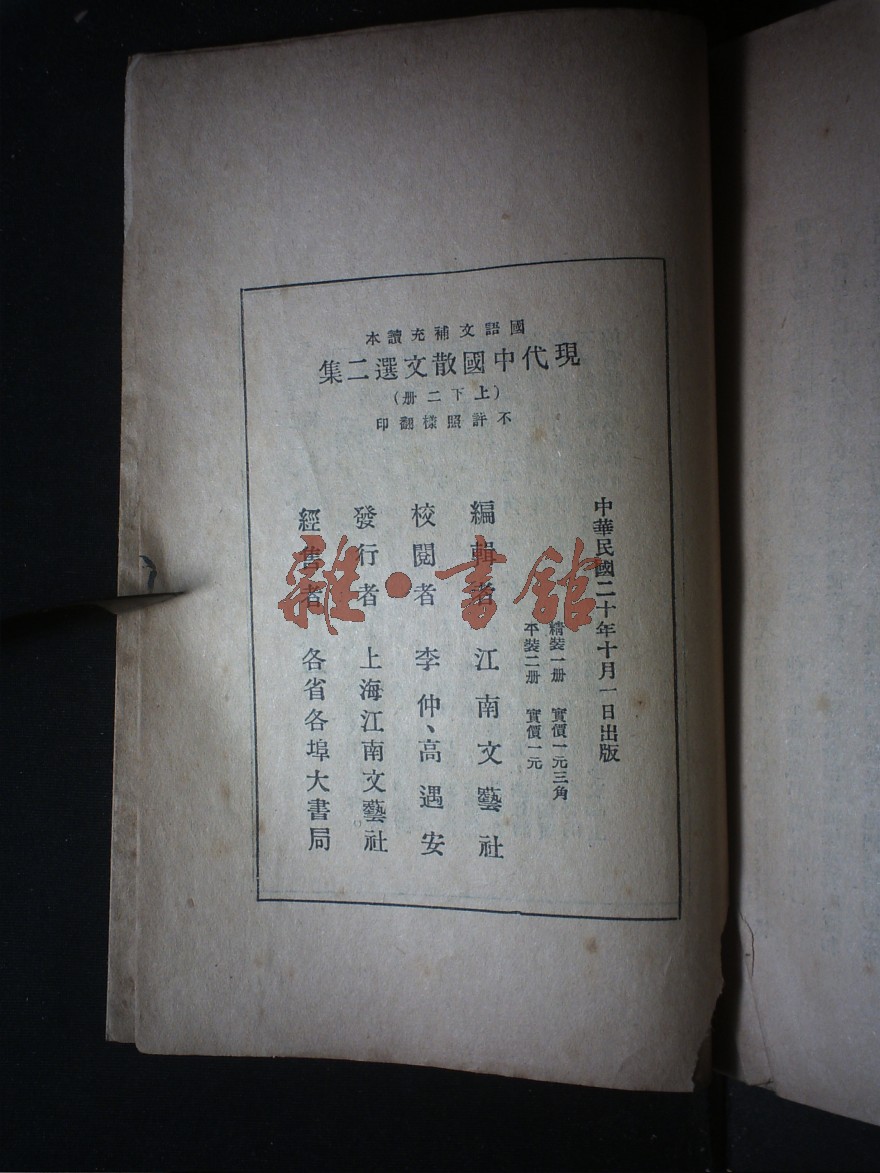 國語文補充讀本
現代中國散文選二集
(上下二册)
不許照樣翻印
中華民國二十年十月一日出版
精裝一册 實價一元三角
平裝二册 實價一元
編輯者 江南文藝社
校閱者 李仲、高遇安
發行者 上海江南文藝社
經售者 各省各埠大書局
雜·書館